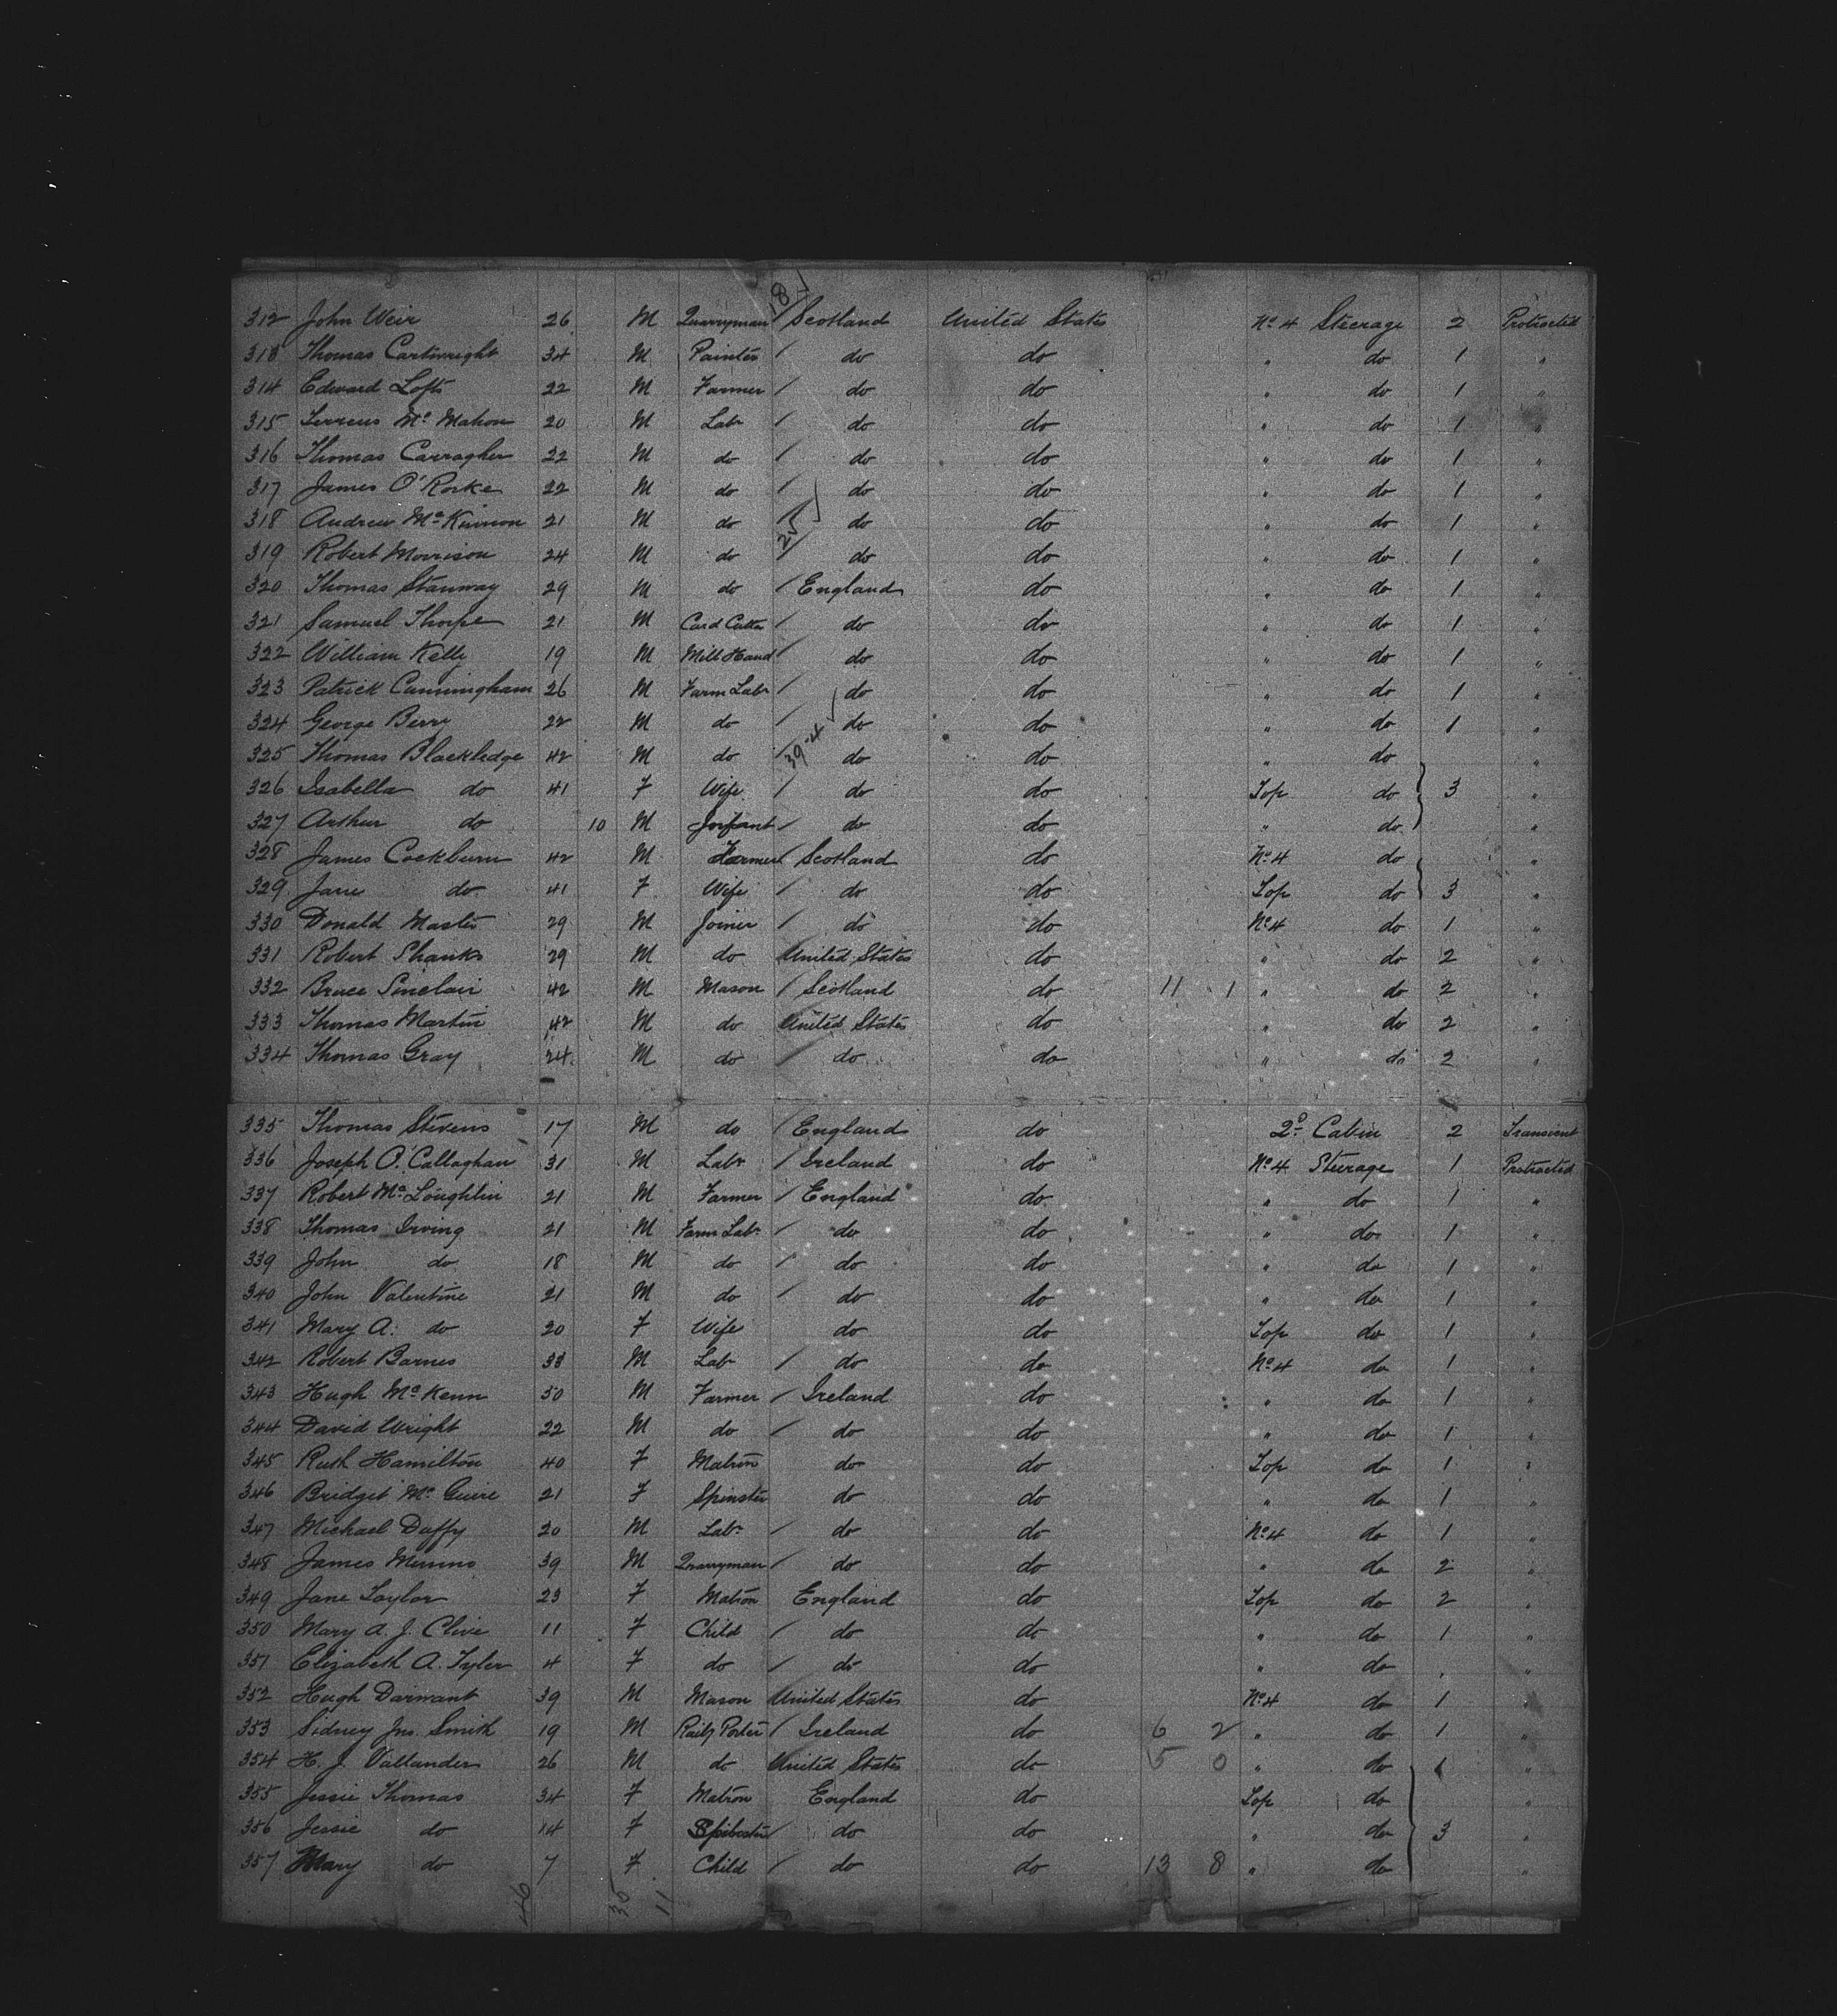 18
312 John Weir 26 M Quarryman / Scotland United States No 4 Steerage 2 Protracted
313 Thomas Cartwright 34 M Painter / do do " do 1 "
314 Edward Loft 22 M Farmer / do do " do 1 "
315 Terreus Mc Mahon 20 M Labr / do do " do 1 "
316 Thomas Carragher 22 M do / do do " do 1 "
317 James O'Rorke 22 M do / do do " do 1 "
318 Andrew McKinnon 21 M do / do do " do 1 "
25
319 Robert Morrison 24 M do / do do " do 1 "
320 Thomas Stanway 29 M do / England do " do 1 "
321 Samuel Thorpe 21 M Card Cutter / do do " do 1 "
322 William Kelly 19 M Mill Hand / do do " do 1 "
323 Patrick Cunningham 26 M Farm Labr / do do " do 1 "
324 George Berry 22 M do / do do " do 1 "
39-4
325 Thomas Blackledge 42 M do / do do " do "
326 Isabella do 41 F Wife / do do Top do 3 "
327 Arthur do 10 M Infant / do do " do "
328 James Cockburn 42 M Farmer / Scotland do No 4 do "
329 Jane do 41 F Wife / do do Top do 3 "
330 Donald Master 29 M Joiner / do do No 4 do 1 "
331 Robert Shanks 29 M do United States do " do 2 "
332 Bruce Sinclair 42 M Mason / Scotland do 11 1 " do 2 "
333 Thomas Martin 42 M do United States do " do 2 "
334 Thomas Gray 24 M do / do do " do 2 "
335 Thomas Stevens 17 M do / England do 2o Cabin 2 Transient
336 Joseph O'Callaghan 31 M Labr / Ireland do No 4 Steerage 1 Protracted
337 Robert McLoughlin 21 M Farmer / England do " do 1 "
338 Thomas Irving 21 M Farm Labr / do do " do 1 "
339 John do 18 M do / do do " do 1 "
340 John Valentine 21 M do / do do " do 1 "
341 Mary A. do 20 F Wife do do Top do 1 "
342 Robert Barnes 33 M Labr / do do No 4 do 1 "
343 Hugh McKenn 50 M Farmer / Ireland do " do 1 "
344 David Wright 22 M do / do do " do 1 "
345 Ruth Hamilton 40 F Matron do do Top do 1 "
346 Bridget McGuire 21 F Spinster do do " do 1 "
347 Michael Duffy 20 M Labr / do do No 4 do 1 "
348 James Munns 39 M Quarryman / do do " do 2 "
349 Jane Taylor 23 F Matron England do Top do 2 "
350 Mary A. J. Clive 11 F Child / do do " do 1 "
351 Elizabeth A. Tyler 4 F do / do do " do "
352 Hugh Darwant 39 M Mason United States do No 4 do 1 "
353 Sidney Jno. Smith 19 M Raily Porter / Ireland do 6 2 " do 1 "
354 H. J. Vallander 26 M do United States do 5 0 " do 1 "
355 Jessie Thomas 34 F Matron England do Top do "
356 Jessie do 14 F Spinster / do do " do 3 "
357 Mary do 7 F Child / do do 13 8 " do "
46 35 11